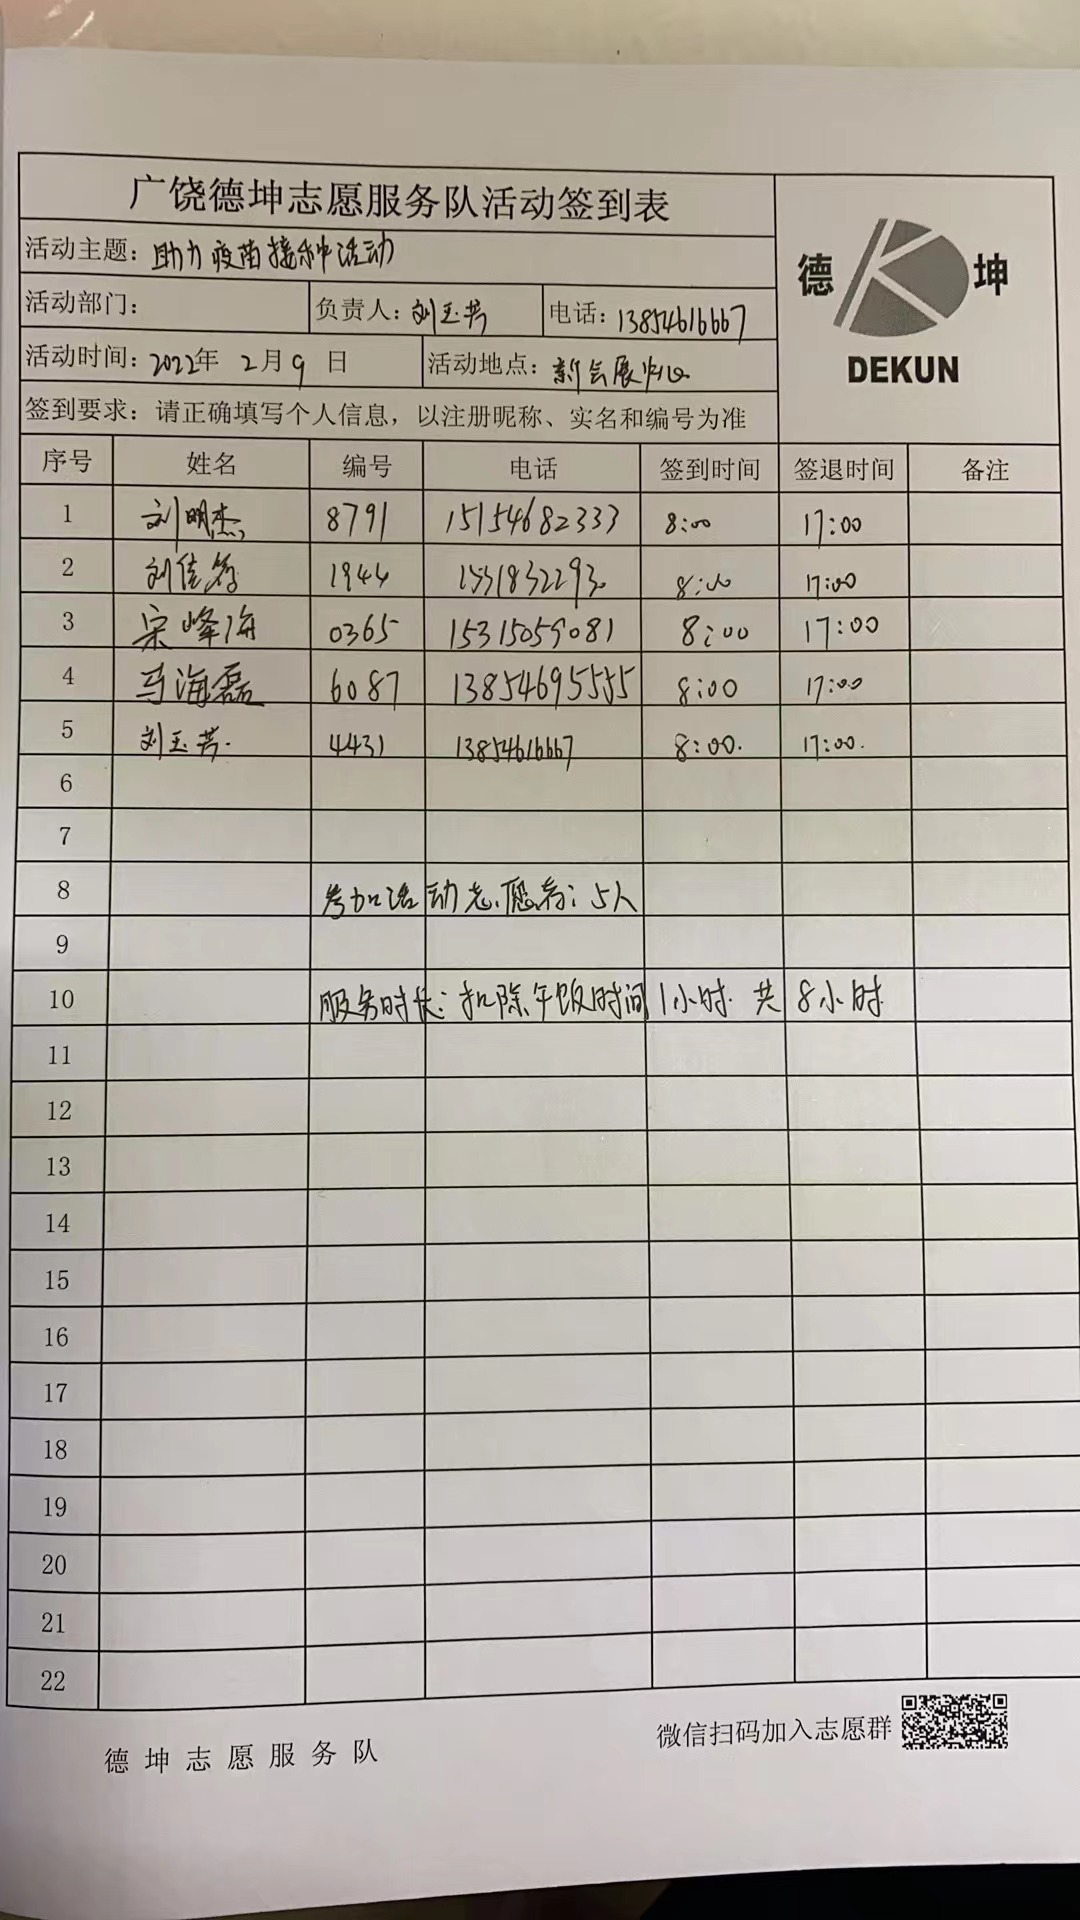 广饶德坤志愿服务队活动签到表
德 坤
DEKUN
活动主题：助力疫苗接种活动
活动部门： 负责人：刘玉芳 电话：13854616667
活动时间：2022年 2月9日 活动地点：新会展中心
签到要求：请正确填写个人信息，以注册昵称、实名和编号为准
序号 姓名 编号 电话 签到时间 签退时间 备注
1 刘明杰 8791 15154682333 8:00 17:00
2 刘佳 1944 8:00 17:00
3 宋峰海 0365 15315059081 8:00 17:00
4 马海磊 6087 13854695555 8:00 17:00
5 刘玉芳. 4431 13854616667 8:00. 17:00.
6
7
8 参加活动志愿者：5人
9
10 服务时长：扣除午饭时间1小时 共8小时
11
12
13
14
15
16
17
18
19
20
21
22
德坤志愿服务队
微信扫码加入志愿群